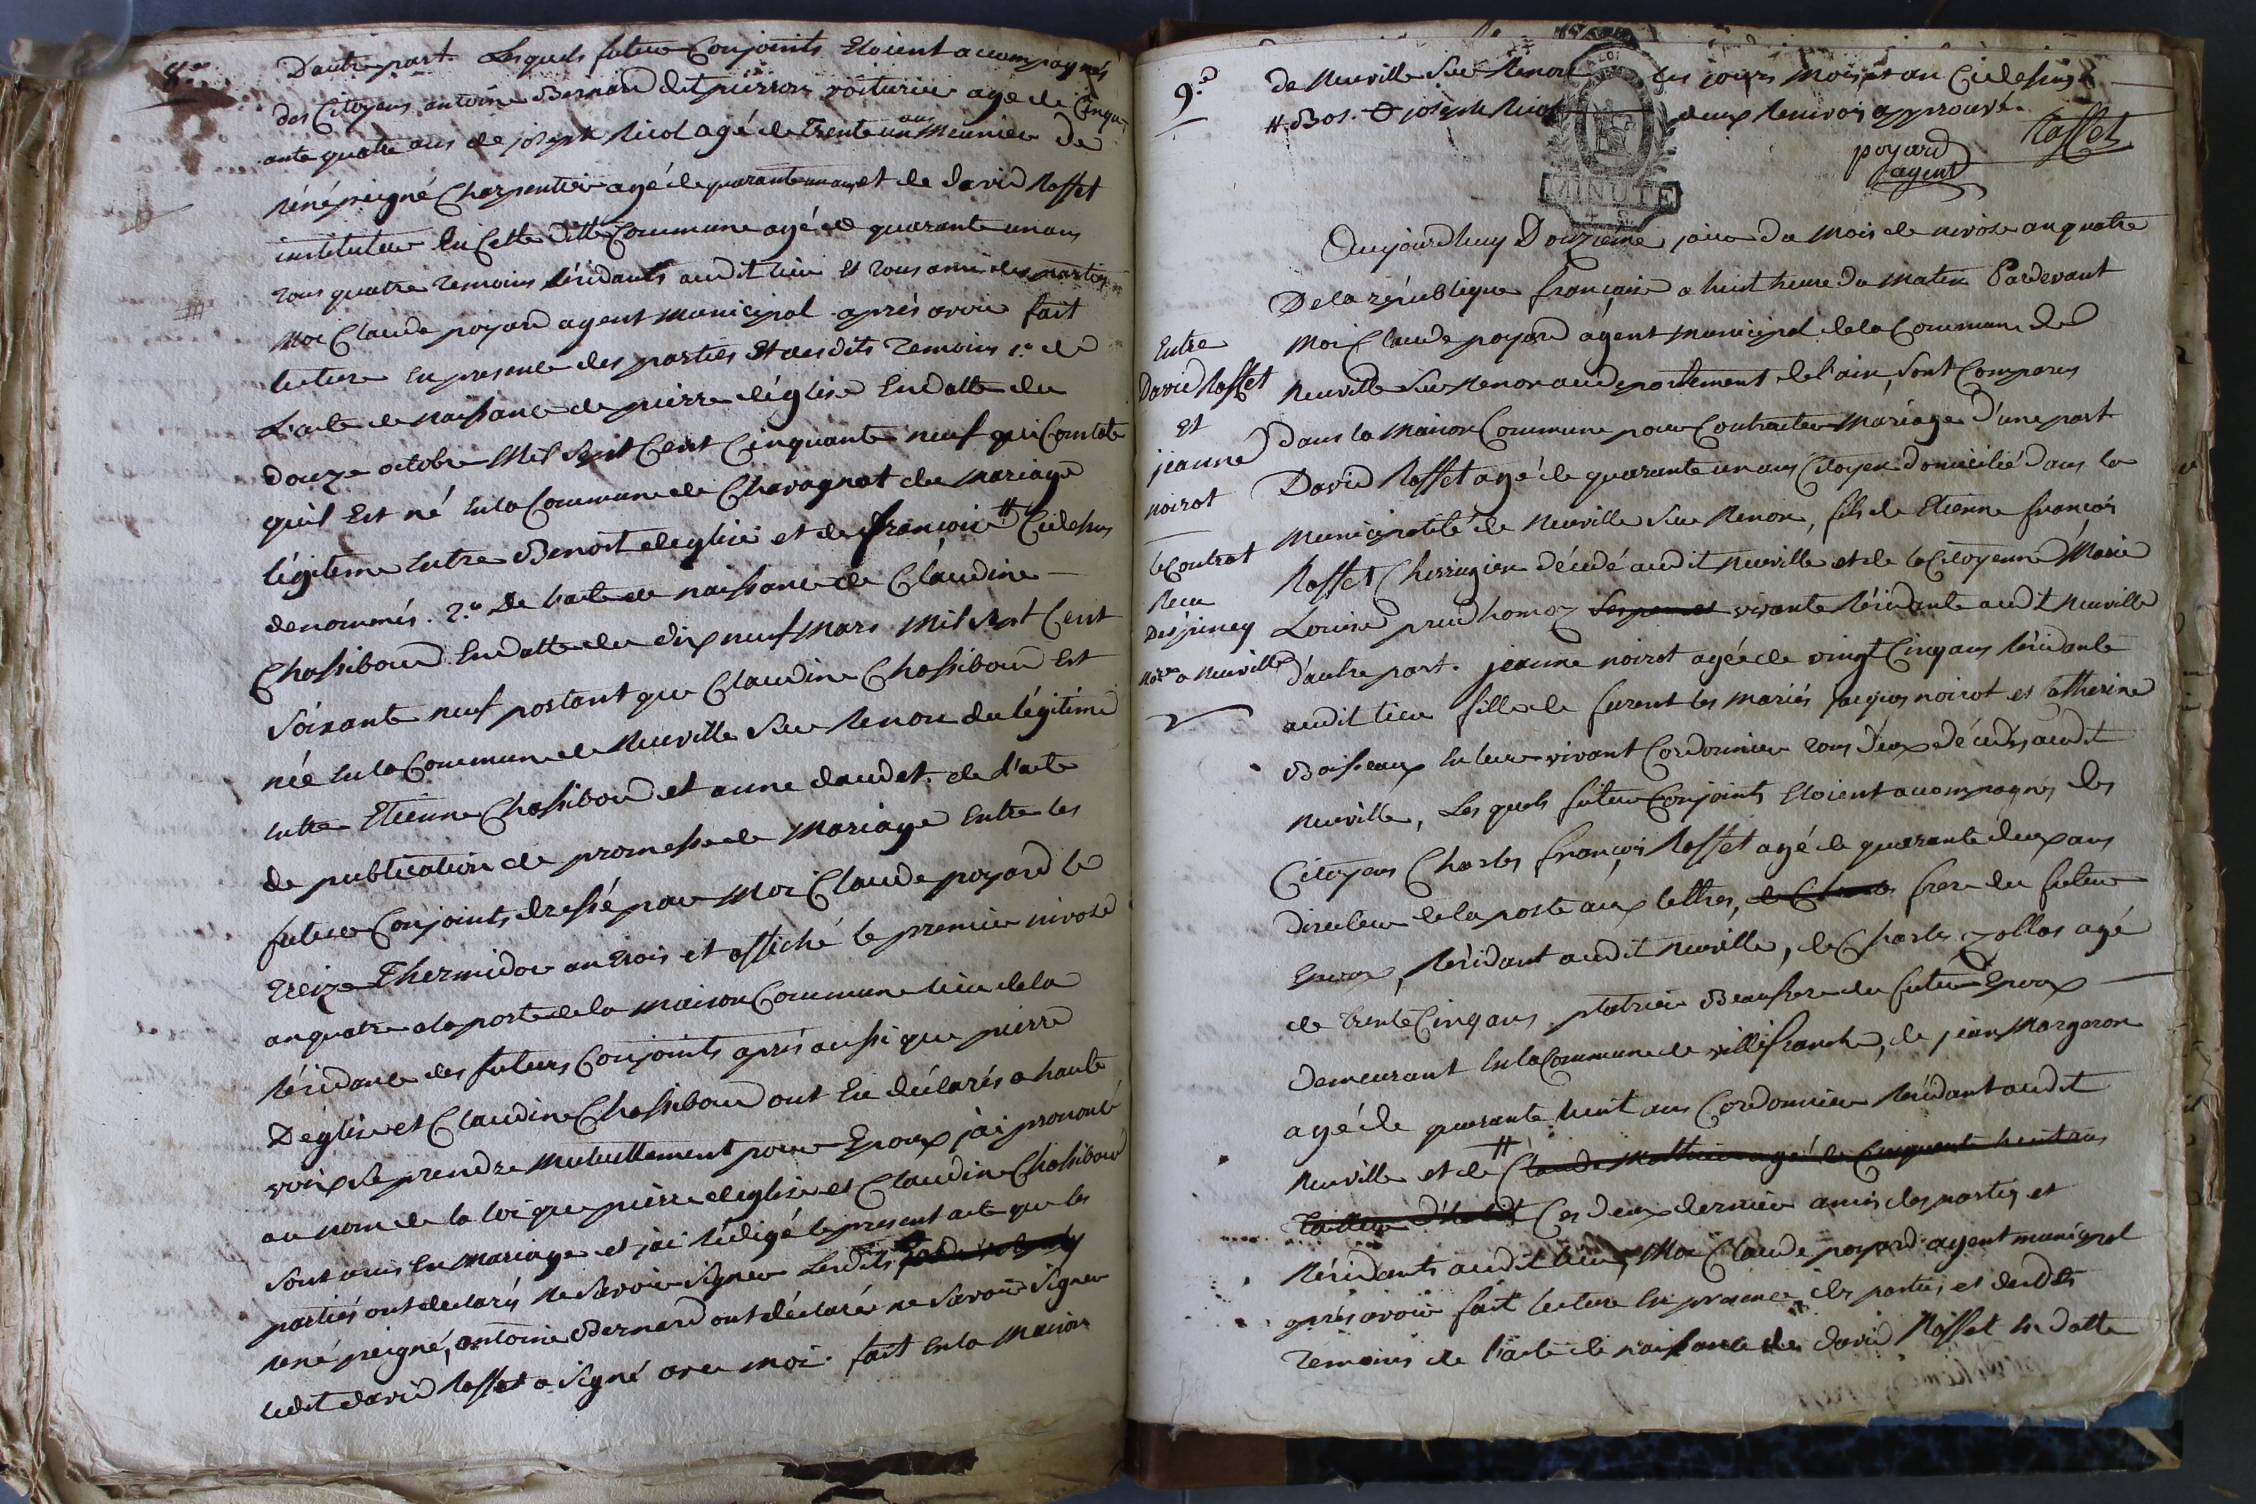 8.e
D'autre part. Lesquels futur Conjoints Etoient accompagnés
des Citoyens antoine Bernard dit pierron voiturier agé de Cinqu-
ante quatre ans de joseph Nicol agé de Trente un ans Meunier de
réné peigné Charpentier agé de quarante un ans, et de david Roffet
instituteur En Cette ditte Commune agé de quarante un ans
tous quatre temoins résidants audit lieu Et tous amis des parties
Moi Claude poyard agent Municipal après avoir fait
lecture En presence des parties Et desdits temoins 1.o de
L'acte de naissance de pierre déglise En datte du
douze octobre Mil Sept Cent Cinquante neuf qui Constate
quil Est né En la Commune de Chavagnat du Mariage
légitime Entre Benoit déglise et de françoise # Cidessus
denommés. 2.o De l'acte de naissance de Claudine
Chassiboud En datte du dix neuf Mars Mil Sept Cent
Soixante neuf portant que Claudine Chassiboud Est
née En la Commune de Neuville Sur Renon du légitime
Entre Etienne Chassiboud et anne daudet. de l'acte
de publication de promesse de Mariage Entre les
futur Conjoints dressé par Moi Claude poyard le
treize Thermidor an trois et affiché le premier nivose
an quatre a la porte de la Maison Commune lieu de la
résidance des futurs Conjoints après aussi que pierre
Déglise et Claudine Chassiboud ont Eu déclarés a haute
voix Se prendre Mutuellement pour Epoux j'ai prononcé
au nom de la loi que pierre déglise et Claudine Chassiboud
Sont unis En Mariage et j'ai rédigé le present acte que les
parties ont declarés ne Savoir Signer lesdits
réné peigné, antoine Bernard ont déclarés ne Savoir Signer
ledit david Roffet a Signé avec moi. fait En la Maison
9.e
de Neuville Sur Renon les jours Mois et an Cidessus
# Bos. & joseph Nicol deux Renvois approuvé.
Roffet
poyard
agent
MINUTE
Aujourdhuy Douzieme jour du Mois de nivose an quatre
De la république française a huit heure du Matin Pardevant
Moi Claude poyard agent Municipal de la Commune de
Neuville Sur Renon au departement de l'ain, Sont Comparus
dans la Maison Commune pour Contracter Mariage d'une part
David Roffet agé de quarante un ans Citoyen domicilié dans la
Municipalité de Neuville Sur Renon, fils de Etienne françois
Roffet Chirrugien décédé audit Neuville et de la Citoyenne Marie
Louise prudhomoz vivante résidante audit Neuville
d'autre part. jeanne noirot agée de vingt Cinq ans résidante
audit lieu fille de furent les mariés jacques noirot et Catherine
Boisseaux En leur vivant Cordonnier tous deux décédés audit
Neuville, Les quels futur Conjoints Etoient accompagnés des
Citoyens Charles françois Roffet agé de quarante deux ans
directeur de la poste aux lettres, frere du futur
Epoux, résidant audit Neuville, de Charles agé
de trente Cinq ans platrier Beaufrere du futur Epoux
demeurant En la Commune de villefranche, de jean Margeron
agé de quarante huit ans Cordonnier résidant audit
Neuville et de # Claude Mathieu agé de Cinquante huit ans
tailleur d'habit Ces deux dernier amis des parties, et
résidants audit lieu, Moi Claude poyard agent municipal
après avoir fait lecture En presence des parties et desdits
temoins de l'acte de naissance de david Roffet En datte
Entre
David Roffet
Et
jeanne
noirot
le Contrat
Recu
Desjuney
not.re a Neuville